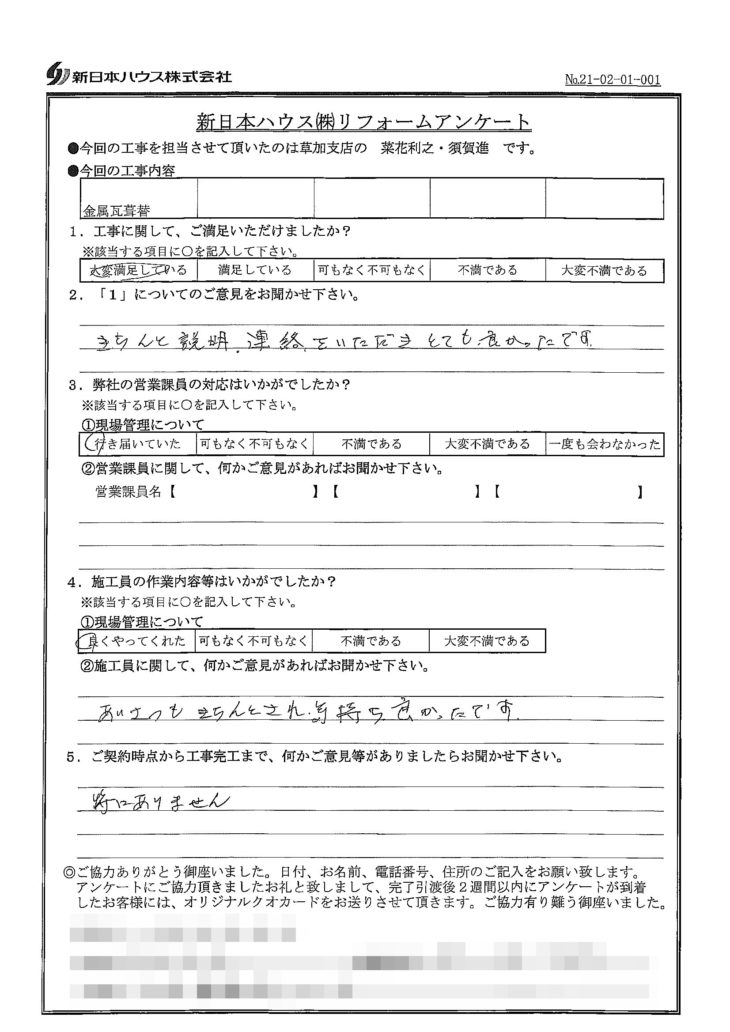 新日本ハウス株式会社
№21-02-01-001
新日本ハウス㈱リフォームアンケート
●今回の工事を担当させて頂いたのは草加支店の 菜花利之・須賀進 です。
●今回の工事内容
金属瓦葺替
1．工事に関して、ご満足いただけましたか？
※該当する項目に○を記入して下さい。
大変満足している 満足している 可もなく不可もなく 不満である 大変不満である
2．「1」についてのご意見をお聞かせ下さい。
きちんと説明、連絡をいただきとても良かったです。
3．弊社の営業課員の対応はいかがでしたか？
※該当する項目に○を記入して下さい。
①現場管理について
行き届いていた 可もなく不可もなく 不満である 大変不満である 一度も会わなかった
②営業課員に関して、何かご意見があればお聞かせ下さい。
営業課員名【 】【 】【 】
4．施工員の作業内容等はいかがでしたか？
※該当する項目に○を記入して下さい。
①現場管理について
良くやってくれた 可もなく不可もなく 不満である 大変不満である
②施工員に関して、何かご意見があればお聞かせ下さい。
あいさつもきちんとされ気持ち良かったです。
5．ご契約時点から工事完工まで、何かご意見等がありましたらお聞かせ下さい。
特にありません
◎ご協力ありがとう御座いました。日付、お名前、電話番号、住所のご記入をお願い致します。
アンケートにご協力頂きましたお礼と致しまして、完了引渡後２週間以内にアンケートが到着
したお客様には、オリジナルクオカードをお送りさせて頂きます。ご協力有り難う御座いました。